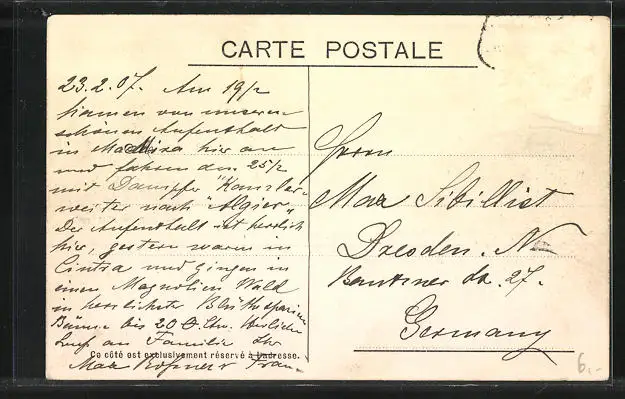 CARTE POSTALE
23.2.07. Am 19/2
kamen von unserem
schönen Aufenthalt
in Madeira hier an
und fahren den 25/2
mit Dampfer "Kanzler"
weiter nach "Algier"
Der Aufenthalt ist herrlich
hier, gestern waren in
Cintra und gingen in
einen Magnolien Wald
in herrlichster Blüthe
Bäume bis 20 Herzliche
an Familie Ihr
Max u Frau
Ce côté est exclusivement réservé à l'adresse.
Herrn
Max Sibillist
Dresden. N
Bautzner str. 27.
Germany
6.-